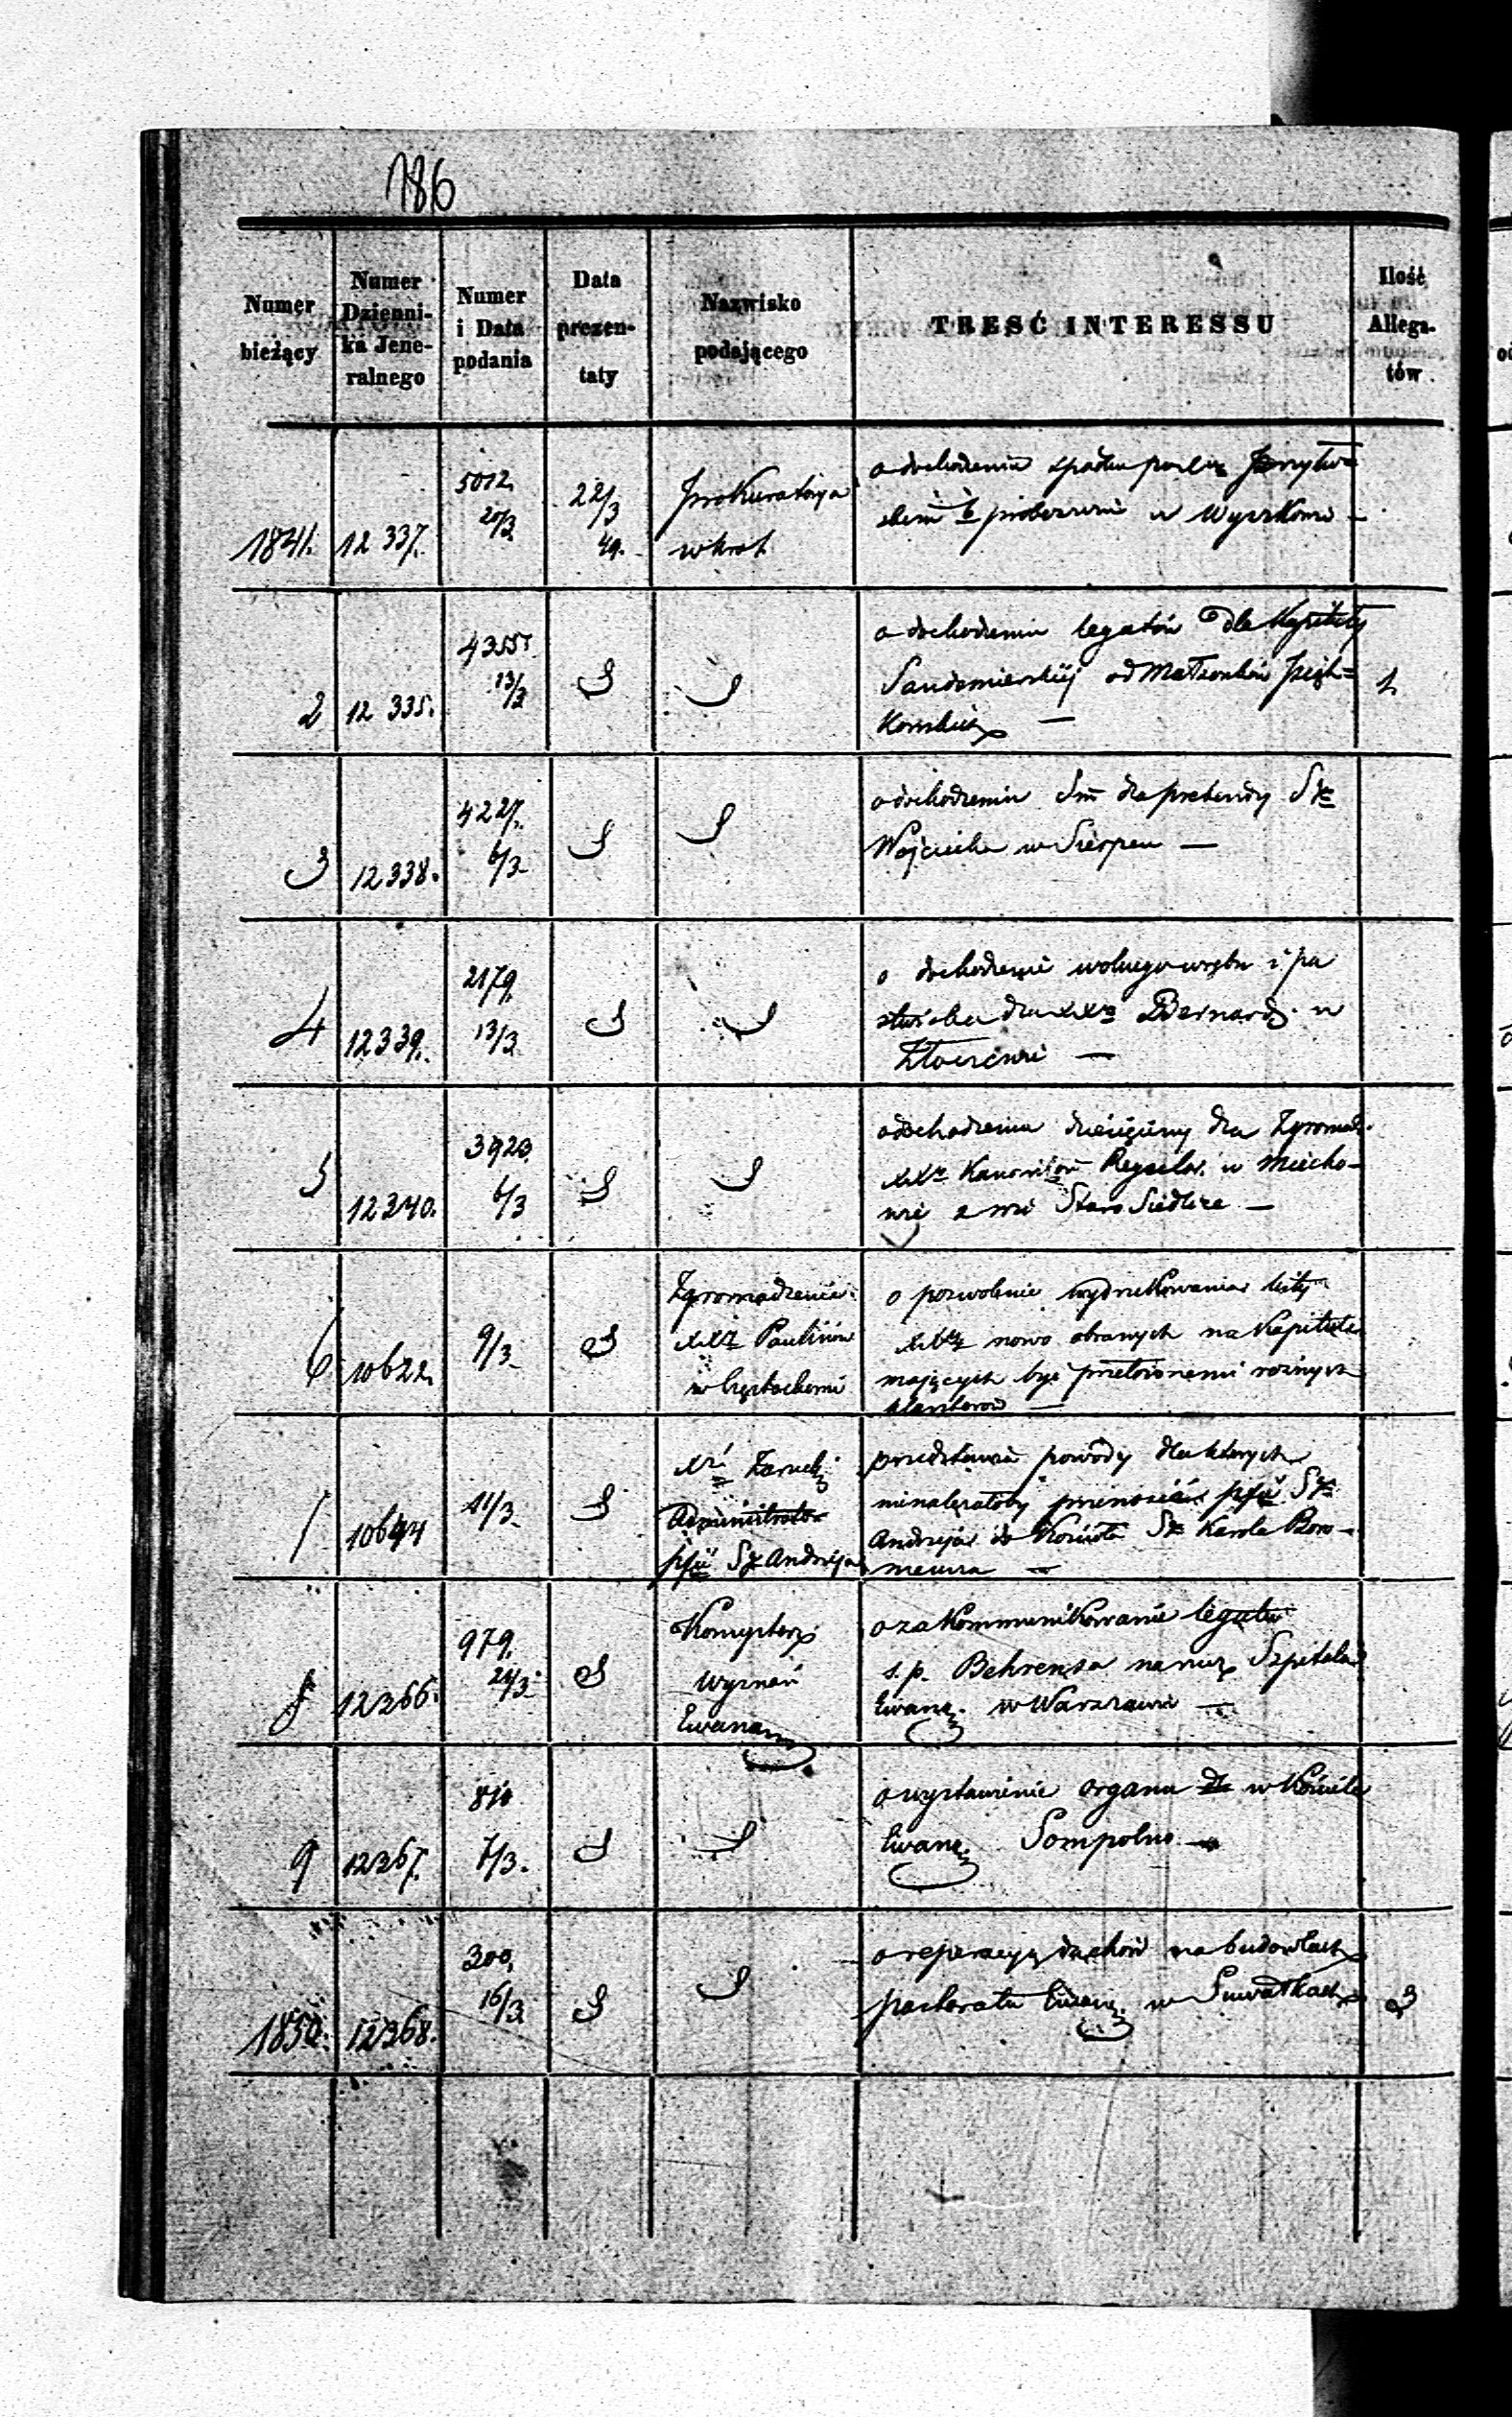 186
Numer bieżący
Numer Dziennika Jeneralnego
Numer i Data podania
Data prezentaty
Nazwisko podającego
TREŚĆ INTERESSU
Ilość Allegatów
1841. 12 337. 5012. 20/3 22/3 49. Prokuratorya
w Król.
o dochodzeniu spadku po
probostwie w Wyszkowie —
2 12 335. 4355. 13/3 S S
o dochodzeniu legatów dla Kapituły
Sandomierskiej od Małżonków
kowskich — 1.
3 12338. 4227. 6/3 S S
o dochodzeniu dla prebendy Sgo
Wojciecha w Sierpcu —
4 12339. 2179. 13/3 S S
o dochodzenie wolnego wrębu i pa
stwiska dla XX Bernard. w
Złoczewie —
5 12340. 3920. 6/3 S S
o dochodzeniu dziesięciny dla Zgromadz.
XX Kanoników Regular. w Miecho-
wie z wsi Staro Siedlice —
6 10622. 9/3 S Zgromadzenie
XX Paulinów
w Częstochowie
o pozwolenie wydrukowania listy
XX nowo obranych na Kapitule
mających być przełożonemi różnych
klasztorów —
10644 11/3 S
Administrator
Sgo Andrzeja
przedstawia powody dla których
nienależałoby przenosić Sgo
Andrzeja do Kościoła Sgo Karola Boro-
meusza —
8 12366. 979. 24/3 S Konsystorz
Wyznań
Ewang.
o zakommunikowanie legatu
s. p. Behrensa na rzecz Szpitala
Ewang. w Warszawie —
9 12367. 810 7/3. S S
o wystawienie organu w Kościele
Ewang. Sompolno —
1850. 12368. 300. 16/3 S S
o reperacyą dachów na budowlach
pastoratu Ewang. w Suwałkach 3